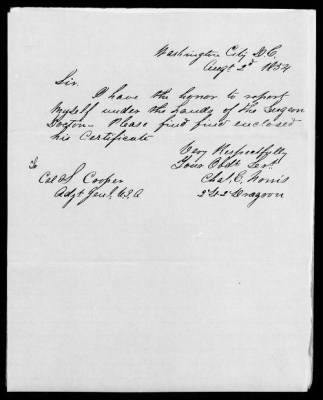 Washington City D.C.
Augt 2d 1854
Sir.
I have the honor to report
Myself under the hands of the Surgeon
Doctor - Please find find enclosed
his Certificate
Very Respectfully
Your Obdt Servt
Chas. E. Norris
2 Lt 2 Dragoon
To
Col S. Cooper
Adjt Genl. U.S.A